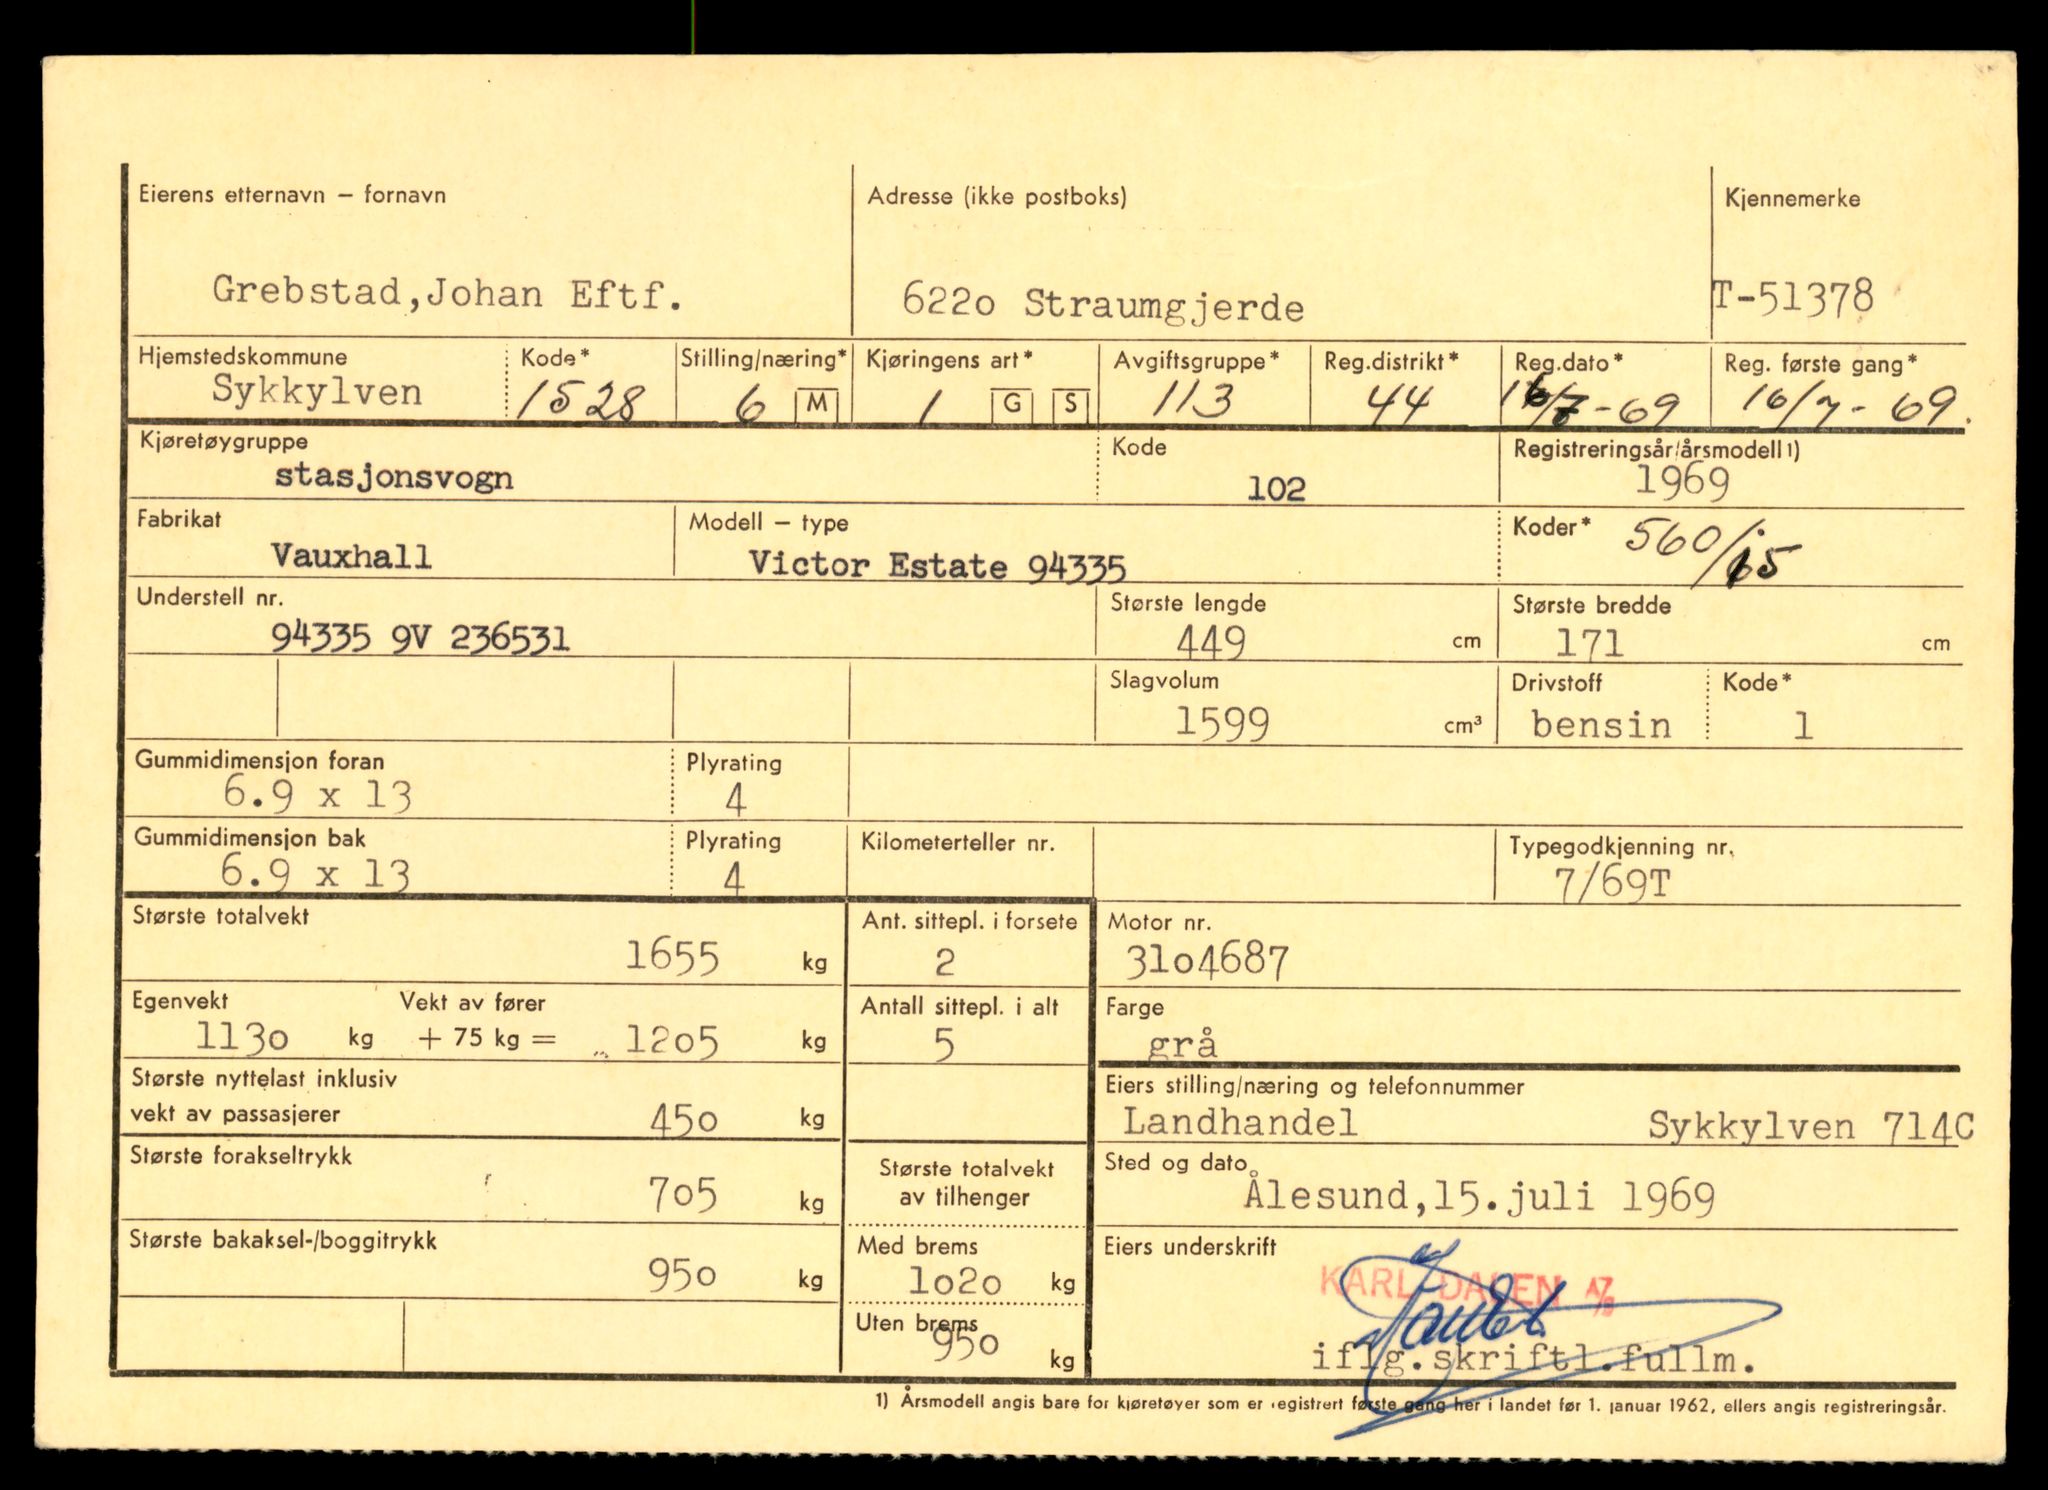 Eierens etternavn – fornavn
Adresse (ikke postboks)
Kjennemerke
Grebstad,Johan Eftf.
622o Straumgjerde
T-51378
Hjemstedskommune
Kode*
Stilling/næring*
Kjøringens art*
Avgiftsgruppe*
Reg.distrikt*
Reg.dato*
Reg. første gang*
Sykkylven
1528
6 M
1 G S
113
44
16/7-69
16/7-69.
Kjøretøygruppe
Kode
Registreringsår/årsmodell1)
stasjonsvogn
102
1969
Fabrikat
Modell – type
Koder*
560/15
Vauxhall
Victor Estate 94335
Understell nr.
Største lengde
Største bredde
94335 9V 236531
449 cm
171 cm
Slagvolum
Drivstoff
Kode*
1599 cm³
bensin
1
Gummidimensjon foran
Plyrating
6.9 x 13
4
Gummidimensjon bak
Plyrating
Kilometerteller nr.
Typegodkjenning nr.
6.9 x 13
4
7/69T
Største totalvekt
Ant. sittepl. i forsete
Motor nr.
1655 kg
2
31o4687
Egenvekt
Vekt av fører
Antall sittepl. i alt
Farge
113o kg + 75 kg = 12o5 kg
5
grå
Største nyttelast inklusiv
vekt av passasjerer
45o kg
Eiers stilling/næring og telefonnummer
Landhandel
Sykkylven 714C
Største forakseltrykk
7o5 kg
Største totalvekt
av tilhenger
Sted og dato
Ålesund,15.juli 1969
Største bakaksel-/boggitrykk
95o kg
Med brems
1o2o kg
Eiers underskrift
KARL DALEN A/S
Uten brems
95o kg
iflg.skriftl.fullm.
1) Årsmodell angis bare for kjøretøyer som er registrert første gang her i landet før 1. januar 1962, ellers angis registreringsår.